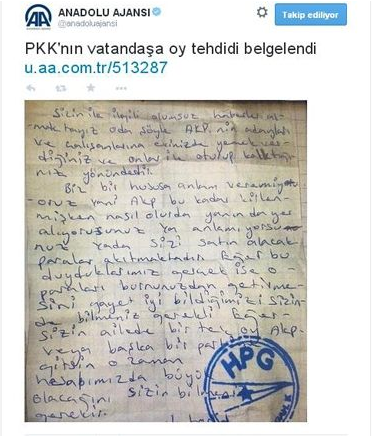 ANADOLU AJANSI
@anadoluajansi
Takip ediliyor
PKK'nın vatandaşa oy tehdidi belgelendi
u.aa.com.tr/513287
Sizin ile ilgili olumsuz haberler al-
maktayız oda şöyle AKP.nin adayları
ve çalışanlarına evinizde yemek ver-
diğiniz ve onlar ile oturup kalktığı-
nız yönündedir.
Biz bir hususa anlam veremiy
oruz yani Akp bu kadar kirlen-
mişken nasıl olurda yanında yer
alıyorsunuz ya anlamıyorsu
nuz yada sizi satın alacak
paralar akıtmaktadır. Eğer bu
duyduklarımız gerçek ise o
paraları burnunuzdan getirme-
sini gayet iyi bildiğimizi sizin
de bilmeniz gerekli Eğer
sizin ailede bir tek oy Akp-
veya başka bir
girsin o zaman
hesabımızda büyü
olacağını sizin
gerekir.
HPG